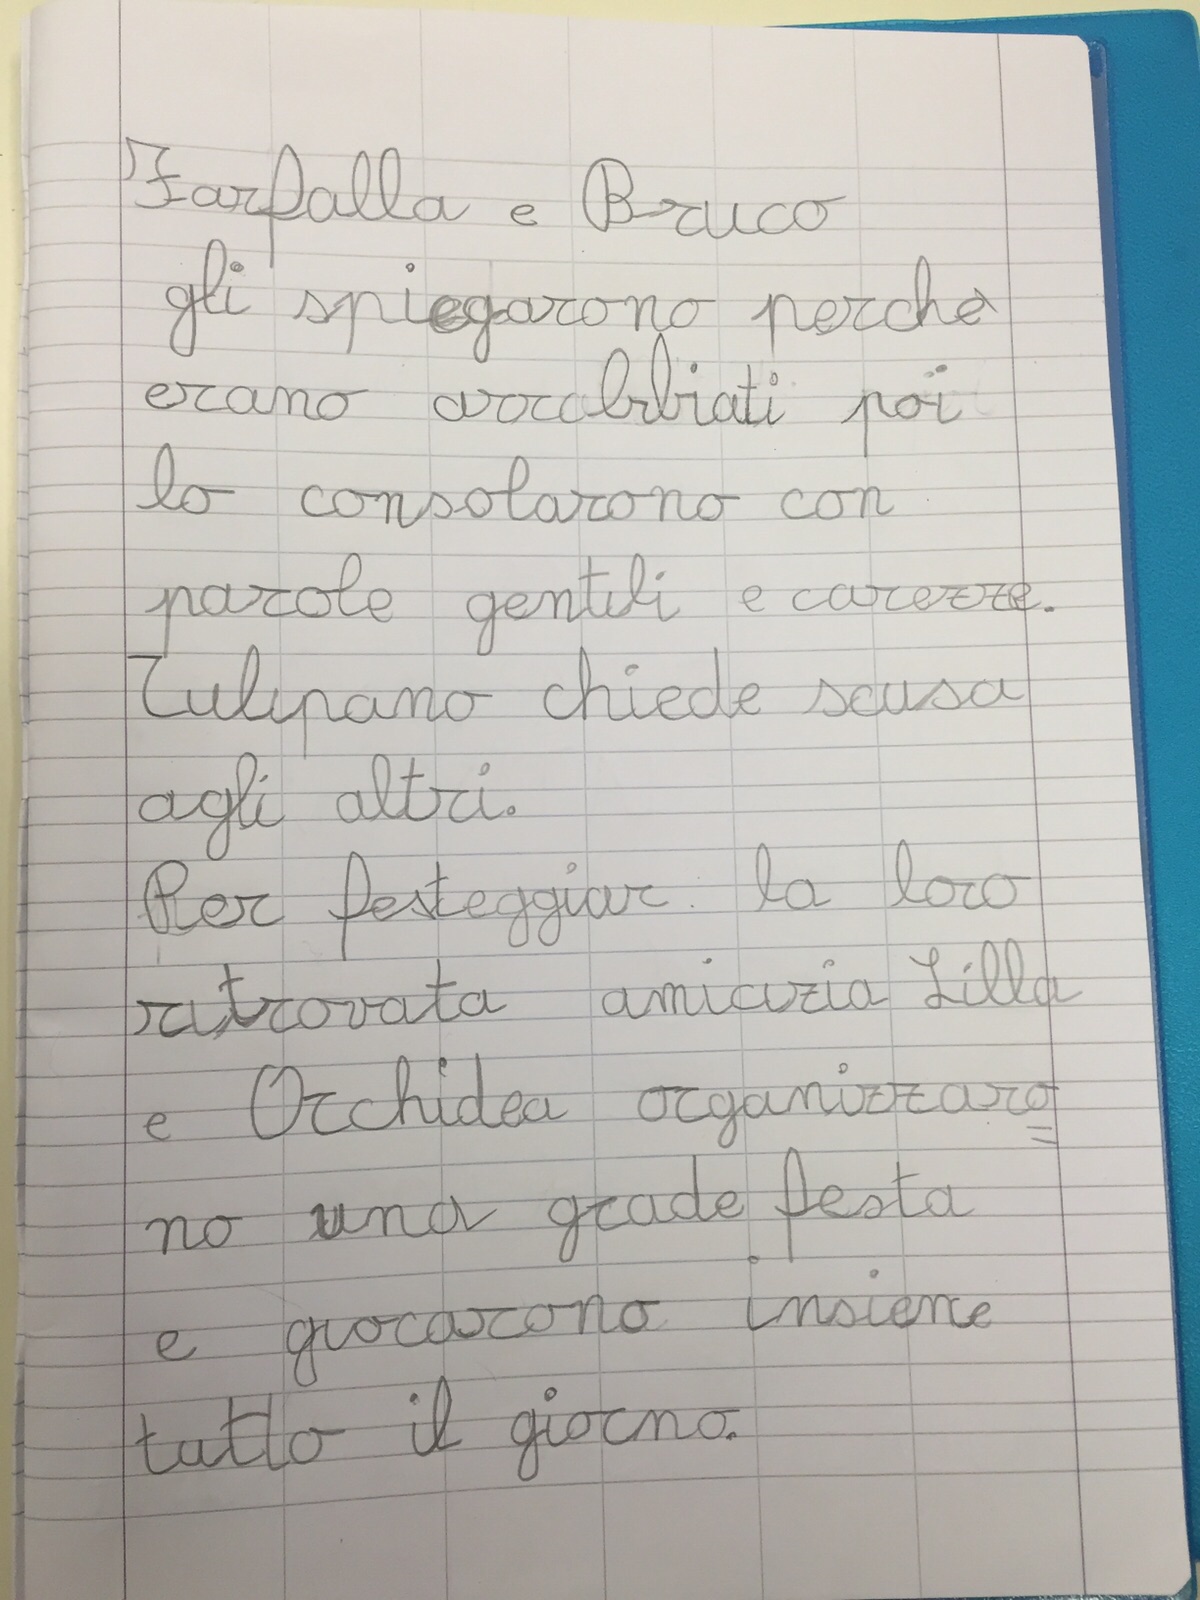 Farfalla e Bruco
gli spiegarono perchè
erano arrabbiati poi
lo consolarono con
parole gentili e carezze.
Tulipano chiede scusa
agli altri.
Per festeggiar la loro
ritrovata amicizia Lilla
e Orchidea organizzaro=
no una grade festa
e giocarono insieme
tutto il giorno.